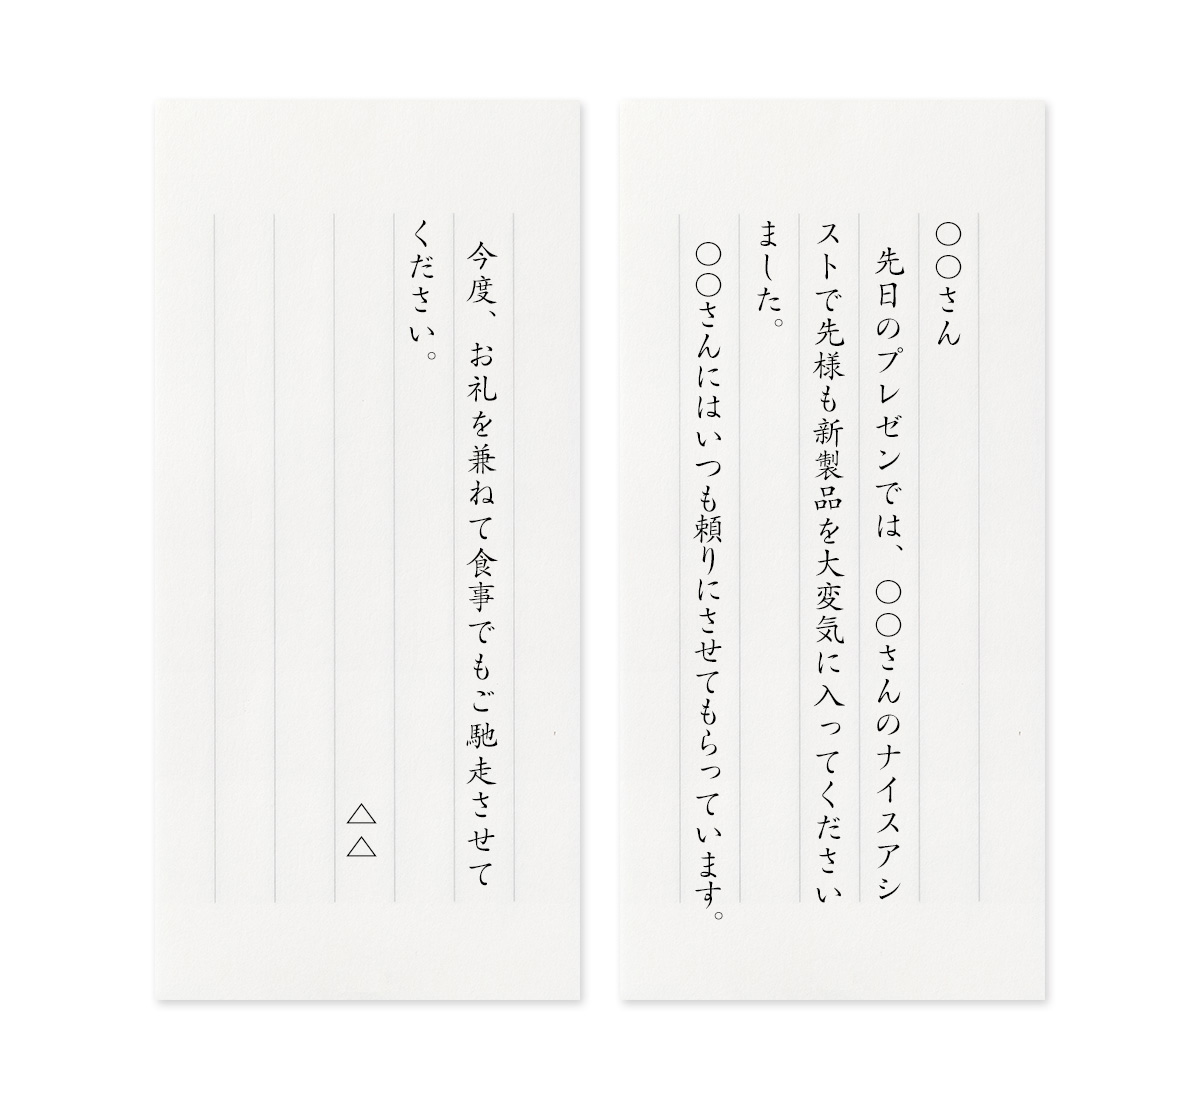 〇〇さん
先日のプレゼンでは、〇〇さんのナイスアシ
ストで先様も新製品を大変気に入ってください
ました。
〇〇さんにはいつも頼りにさせてもらっています。
今度、お礼を兼ねて食事でもご馳走させて
ください。
△△